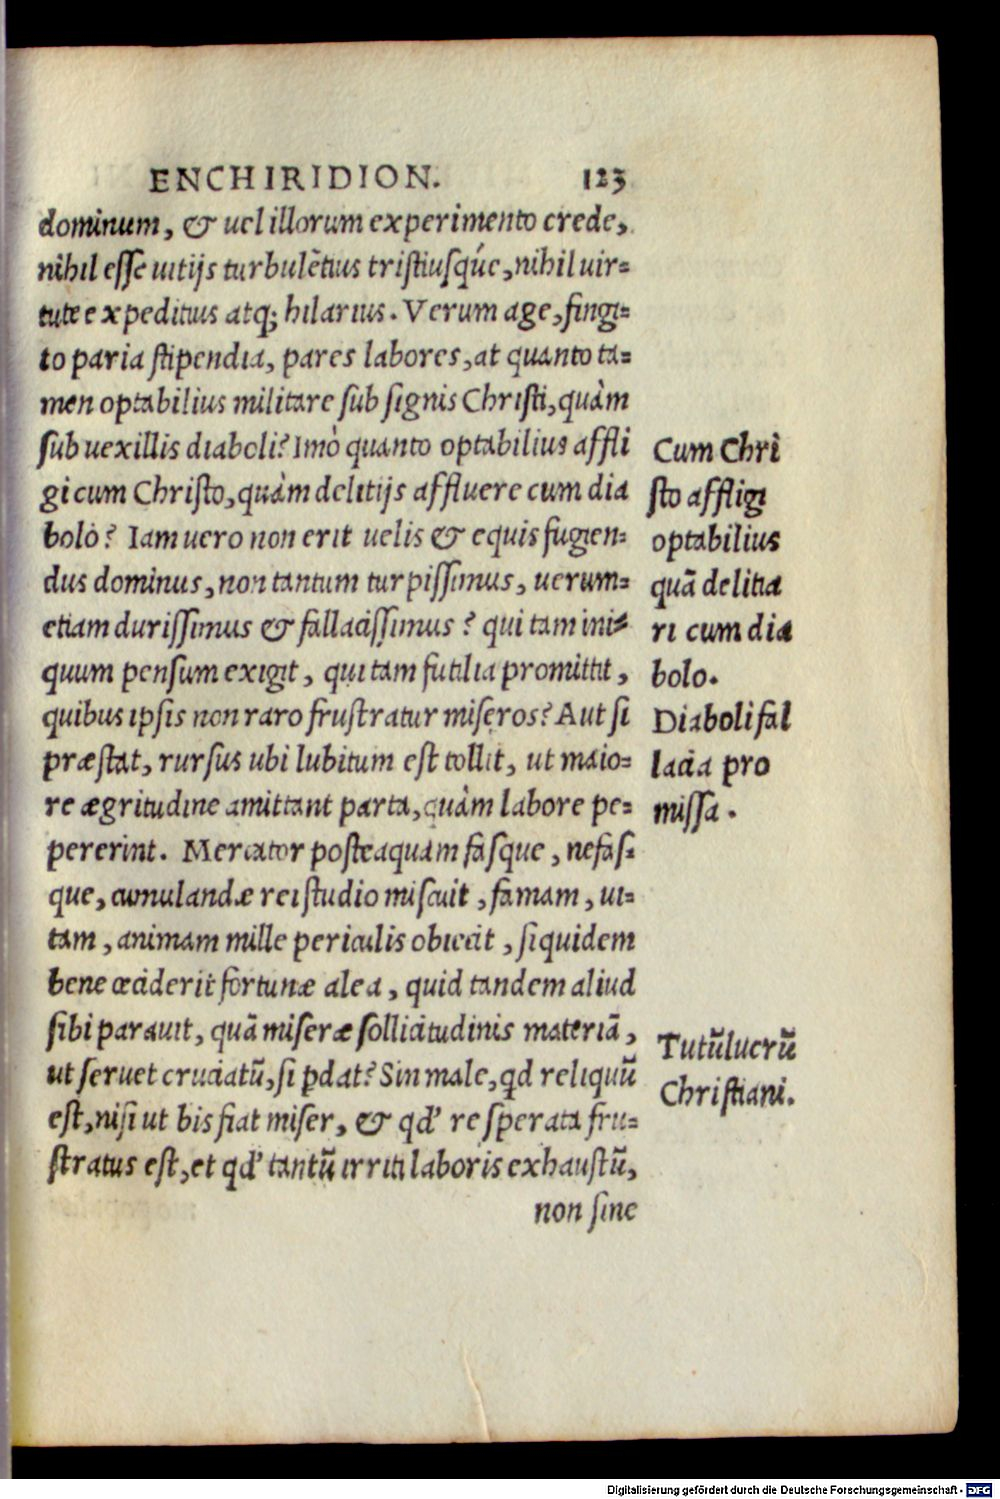 ENCHIRIDION. 123
dominum, & uel illorum experimento crede,
nihil esse uitijs turbulẽtius tristiusq́ue, nihil uir-
tute expeditius atq; hilarius. Verum age, fingi-
to paria stipendia, pares labores, at quanto ta-
men optabilius militare sub signis Christi, quàm
sub uexillis diaboli? Imò quanto optabilius affli
gi cum Christo, quàm delitijs affluere cum dia
bolo? Iam uero non erit uelis & equis fugien-
dus dominus, non tantum turpissimus, uerum-
etiam durissimus & fallacissimus? qui tam ini-
quum pensum exigit, qui tam futilia promittit,
quibus ipsis non raro frustratur miseros? Aut si
præstat, rursus ubi lubitum est tollit, ut maio-
re ægritudine amittant parta, quàm labore pe-
pererint. Mercator posteaquam fasque, nefas-
que, cumulandæ rei studio miscuit, famam, ui-
tam, animam mille periculis obiecit, siquidem
bene œciderit fortunæ alea, quid tandem aliud
sibi parauit, quã miseræ sollicitudinis materiã,
ut seruet cruciatũ, si p̱dat? Sin male, qd reliquũ
est, nisi ut bis fiat miser, & qd' re sperata fru-
stratus est, et qd' tantũ irriti laboris exhaustũ,
non sine
Cum Chri
sto affligi
optabilius
quã delitia
ri cum dia
bolo.
Diaboli fal
lacia pro
missa.
Tutũ lucrũ
Christiani.
Digitalisierung gefördert durch die Deutsche Forschungsgemeinschaft - DFG